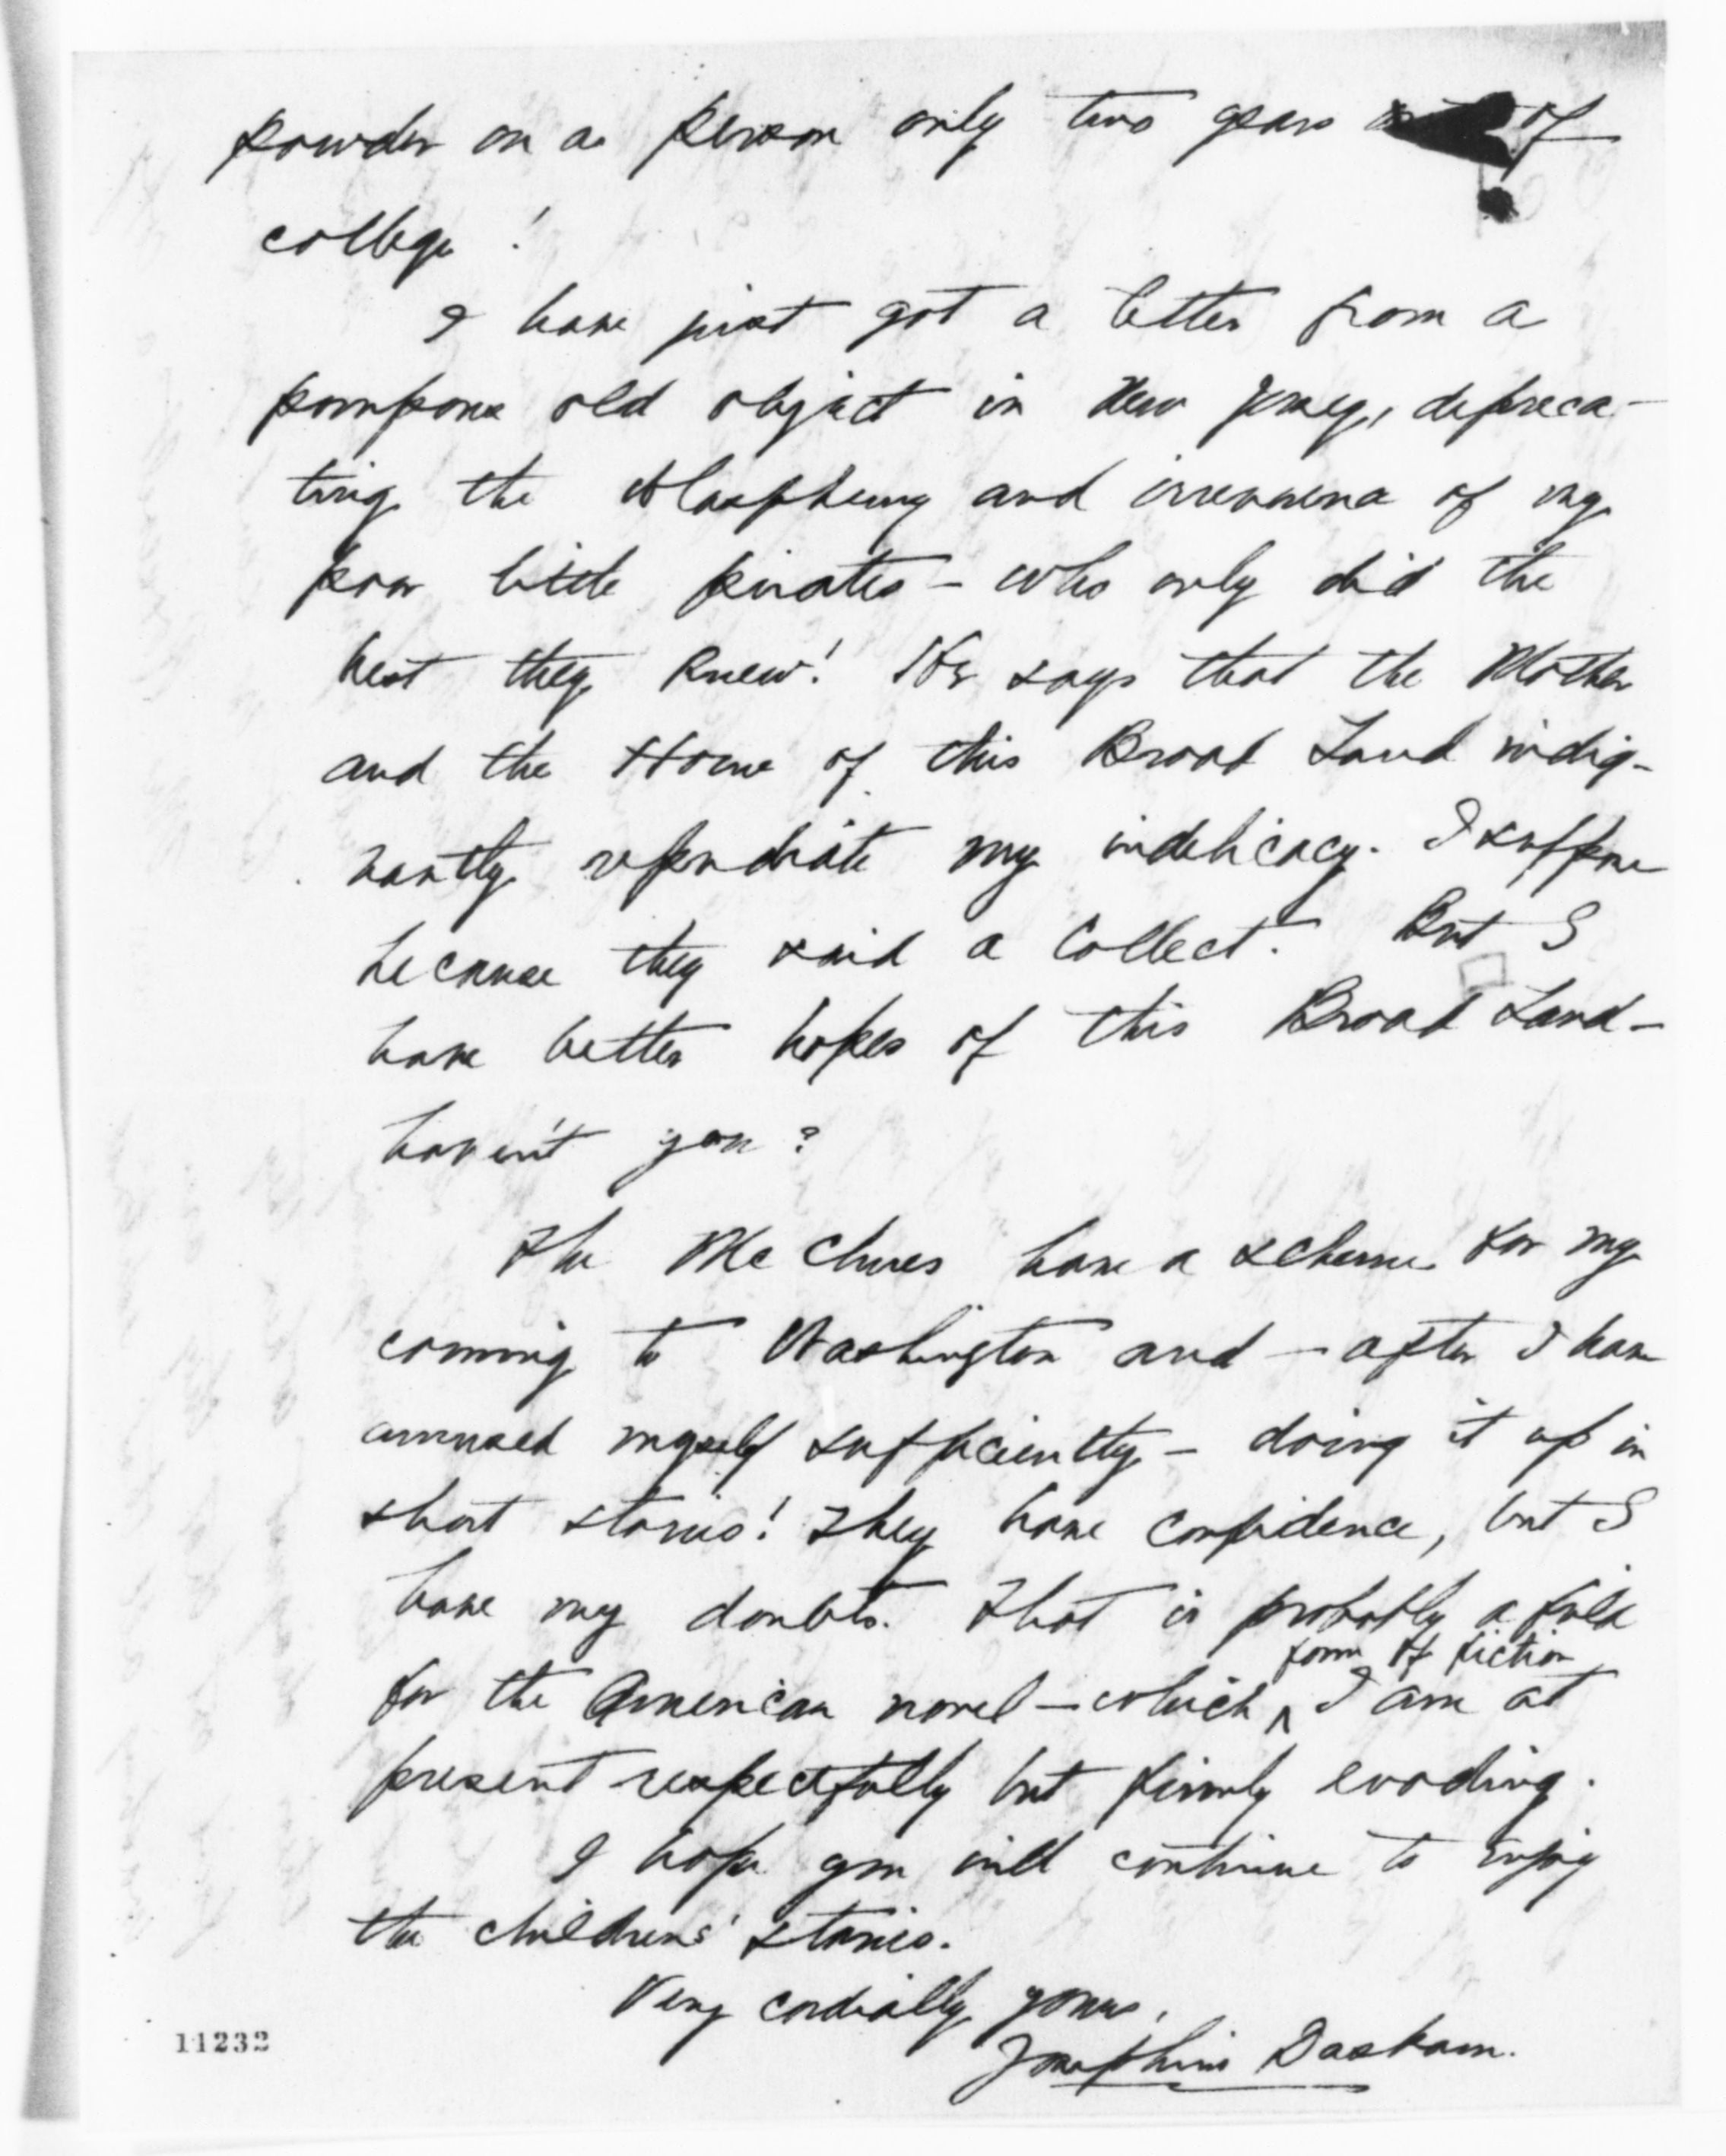 powder on a person only two years out of
college!
I have just got a letter from a
pompous old object in New Jersey, depreca-
ting the blasphemy and irreverence of my
poor little pirates - who only did the
best they knew! He says that the Mother
and the Home of this Broad Land indig-
nantly repudiate my indelicacy. I suppose
because they said a Collect. But I
have better hopes of this Broad Land -
haven't you?
The McClures have a scheme for my
coming to Washington and - after I have
amused myself sufficiently - doing it up in
short stories! They have confidence, but I
have my doubts. That is probably a field
form of fiction
for the American novel - which ^ I am at
present respectfully but firmly evading.
I hope you will continue to enjoy
the childrens' stories.
Very cordially yours,
Josephine Daskam.
11232